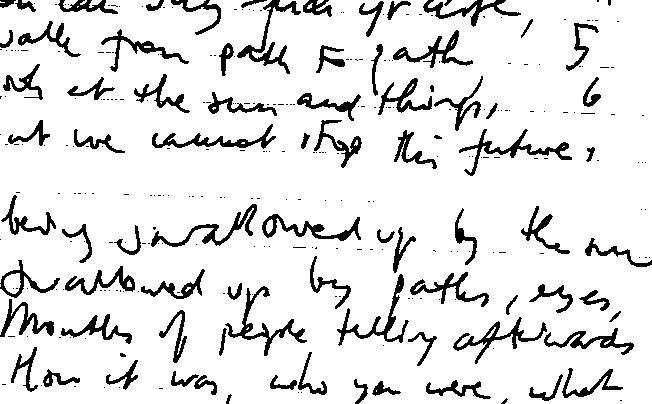 walk from path to path 5
at the sun and things, 6
but we cannot stop this future,
being swallowed up by the sun
swallowed up by paths, eyes,
Mouths of people telling afterwards
How it was, who you were, what